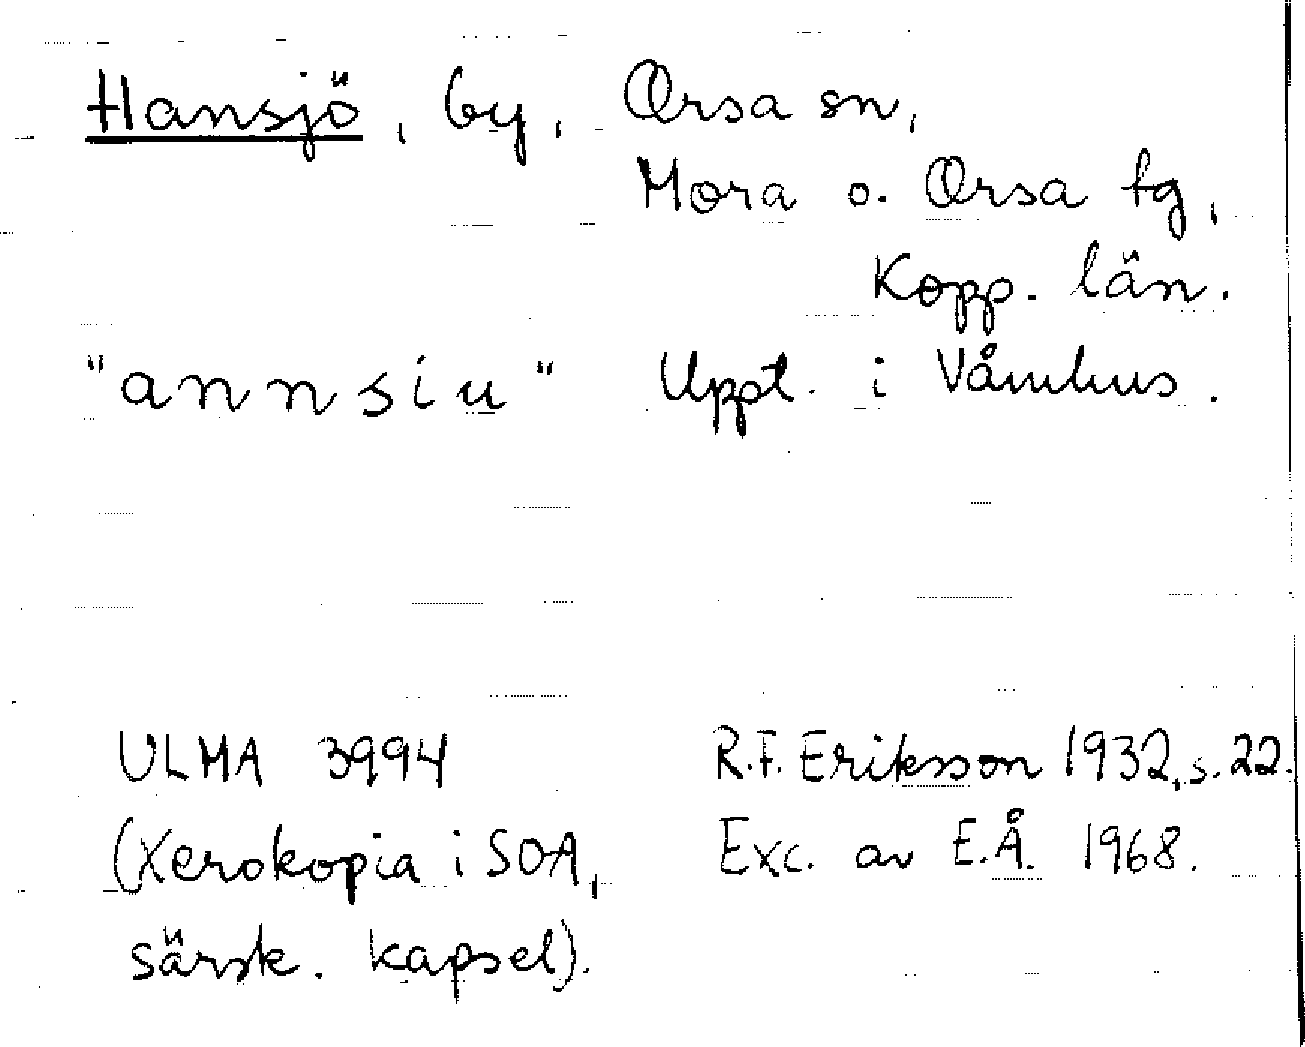 Hansjö, by, Orsa sn,
Mora o. Orsa tg,
Kopp. län.
"annsiu" Uppt. i Våmhus.
ULMA 3994 R.F. Eriksson 1932, s. 22.
(Xerokopia i SOA, Exc. av E.Å. 1968.
särsk. kapsel).